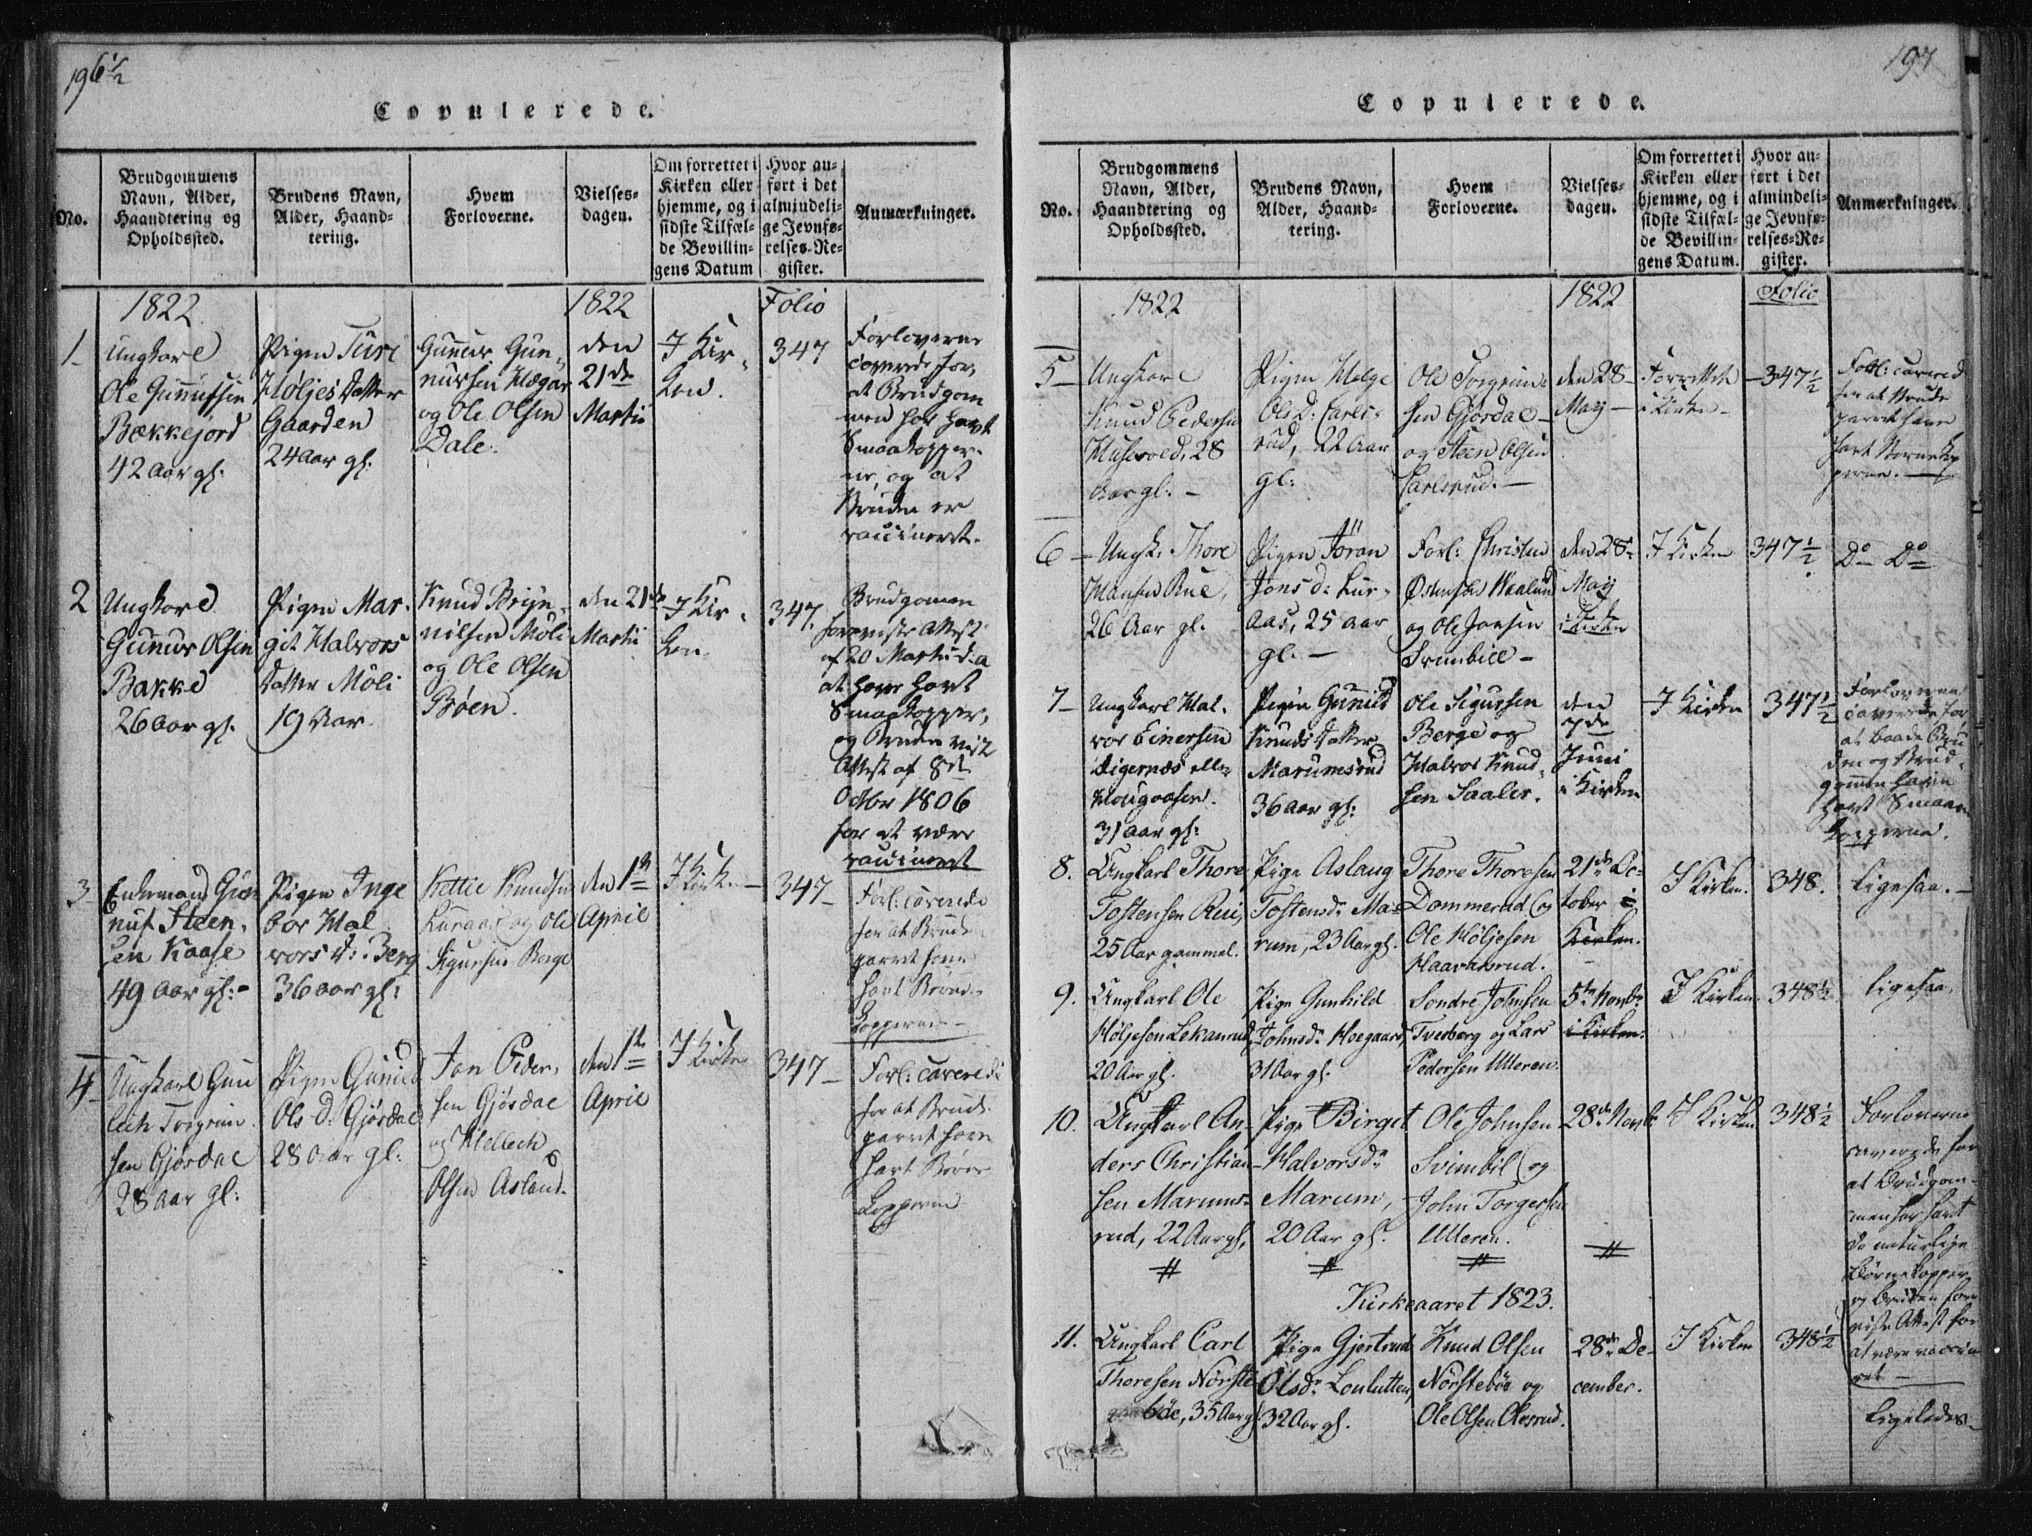 196½
Copulerede.
No.
Brudgommens
Navn, Alder,
Haandtering og
Opholdssted.
Brudens Navn,
Alder, Haand-
tering.
Hvem
Forloverne.
Vielses-
dagen.
Om forrettet i
Kirken eller
hjemme, og i
sidste Tilfæl-
de Bevillin-
gens Datum
Hvor an-
ført i det
almindeli-
ge Jevnfø-
relses-Re-
gister.
Anmærkninger.
1822
1822
Folio
1
Ungkarl
Ole Gunnufsen
Bækkejord
42 aar gl.
Pigen Turi
Høljesdatter
Gaarden
24 aar gl.
Gunnur Gun-
nursen
og Ole Olsen
Dale.
den
21de
Martii
I Kir-
ken.
347
Forloverne
caverede for,
at Brudgom
men har havt
Smaakopper-
ne, og at
Bruden er
vaccineret.
2
Ungkarl
Gunnur Olsen
Bakke
26 aar gl.
Pigen Mar-
git Halvors
datter Möli
19 Aar.
Knud Bryn-
nilsen Möli
og Ole Olsen
Bøen.
den 21de
Martii
I Kir-
ken.
347.
Brudgomen
foreviste Attest
af 20 Martii d: a
at have havt
Smaakopper,
og Bruden viist
Attest af 8de
Octbr 1806
for at være
vaccineret
3
Enkemand Gun
nuf Steen-
sen Kaase
49 aar gl:
Pigen Inge
bor Hal
vors d: Berg
36 aar gl:
Kittil Knudsen
og Ole
Sigursen Berge
den 1ste
April
I Kirken
347
Forl: caverede
for at Brude
parret have
havt Børne-
kopperne
4
Ungkarl Gun
leik Torgrim-
sen Gjøsdal
28 aar gl:
Pigen Gunild
Ols D: Gjøsdal
28 aar gl:
Jon Peder-
sen Gjøsdal
og Kelleck
Olsen Asland.
den 1ste
April
I Kirken
347
Forl: caverede
for at Brude
parret have
havt Børne
kopperne
197
Copulerede.
No.
Brudgommens
Navn, Alder,
Haandtering og
Opholdssted.
Brudens Navn,
Alder, Haand-
tering.
Hvem
Forloverne.
Vielses-
dagen.
Om forrettet i
Kirken eller
hjemme, og i
sidste Tilfæl-
de Bevillin-
gens Datum.
Hvor an-
ført i det
almindeli-
ge Jevnfø-
relses-Re-
gister.
Anmærkninger.
1822
1822
Folio
5
Ungkarl
Knud Pedersen
Husevold, 28
Aar gl:
Pigen Helge
Ols D: Carls-
rud, 22 aar
gl:
Ole Torgrim-
sen Gjøsdal
og Steen Olsen
Carlsrud.
den 28
Maij
Forrettet
i Kirken
347½
Forl: cavered
for at Brude
parret have
havt Børnekop
perne.
6
Ungk: Thore
Hansen Rue,
26 Aar gl.
Pigen Jöran
Jons d: Lur-
aas, 25 aar
gl.
Forl: Christen
Østensen Waalund
og Ole Jonsen
Svimbill
den 28
Maij
i Kirken
I Kirken
347½
Do Do
7
Ungkarl Hal-
vor Einersen
Digernæs eller
Hougaasen.
31 aar gl:
Pigen Gunild
Knudsdatter
Marumsrud
36 aar gl:
Ole Sigursen
Berge og
Halvor Knud-
sen Saaler.
den
7de
Juni
i Kirken
I Kirken
347½
Forloverne
caverede for
at baade Bru
den og Brud-
gommen havde
havt Smaa-
kopperne.
8.
Ungkarl Thore
Tostensen Rui,
25 Aar gammel.
Pige Aslaug
Tostensdr Ma-
rum, 23 Aar gl.
Thore Thoresen
Dommerud og
Ole Höljesen
Haavarsrud.
21de Oc-
tober i
Kirken.
I Kirken.
348.
Ligesaa.
9.
Ungkarl Ole
Höljesen Lekanrud,
20 Aar gl.
Pige Gunhild
Johnsdr Hoegaard,
31 Aar gl.
Søndre Johnsen
Tverberg og Lars
Pedersen Ulleren.
5te Novbr
i Kirken.
I Kirken.
348½
Ligesaa.
10.
Ungkarl An-
ders Christian-
sen Marums-
rud, 22 Aar gl.
Pige Birget
Halvorsdr
Marum,
20 Aar gl.
Ole Johnsen
Svimbil og
John Torgersen
Ulleren.
28de Novbr
I Kirken
348½
Forloverne
caverede for
at Brudgom-
men har havt
de naturlige
Børnekopper
og Bruden fore
viste Attest for
at være vaccine
ret
Kirkeaaret 1823.
11.
Ungkarl Carl
Thoresen Nörste
böe, 35 Aar gl
Pige Gjertrud
Olsdr Loulutten,
32 Aar gl.
Knud Olsen
Nörsteböe og
Ole Olsen Olesrud.
28de De-
cember.
I Kirken
348½
Ligeledes